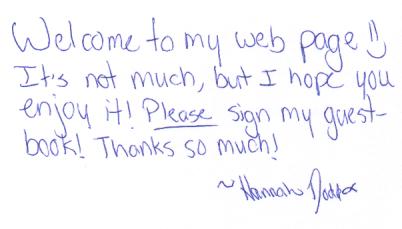 Welcome to my web page!!
It's not much, but I hope you
enjoy it! Please sign my guest-
book! Thanks so much!
~Hannah